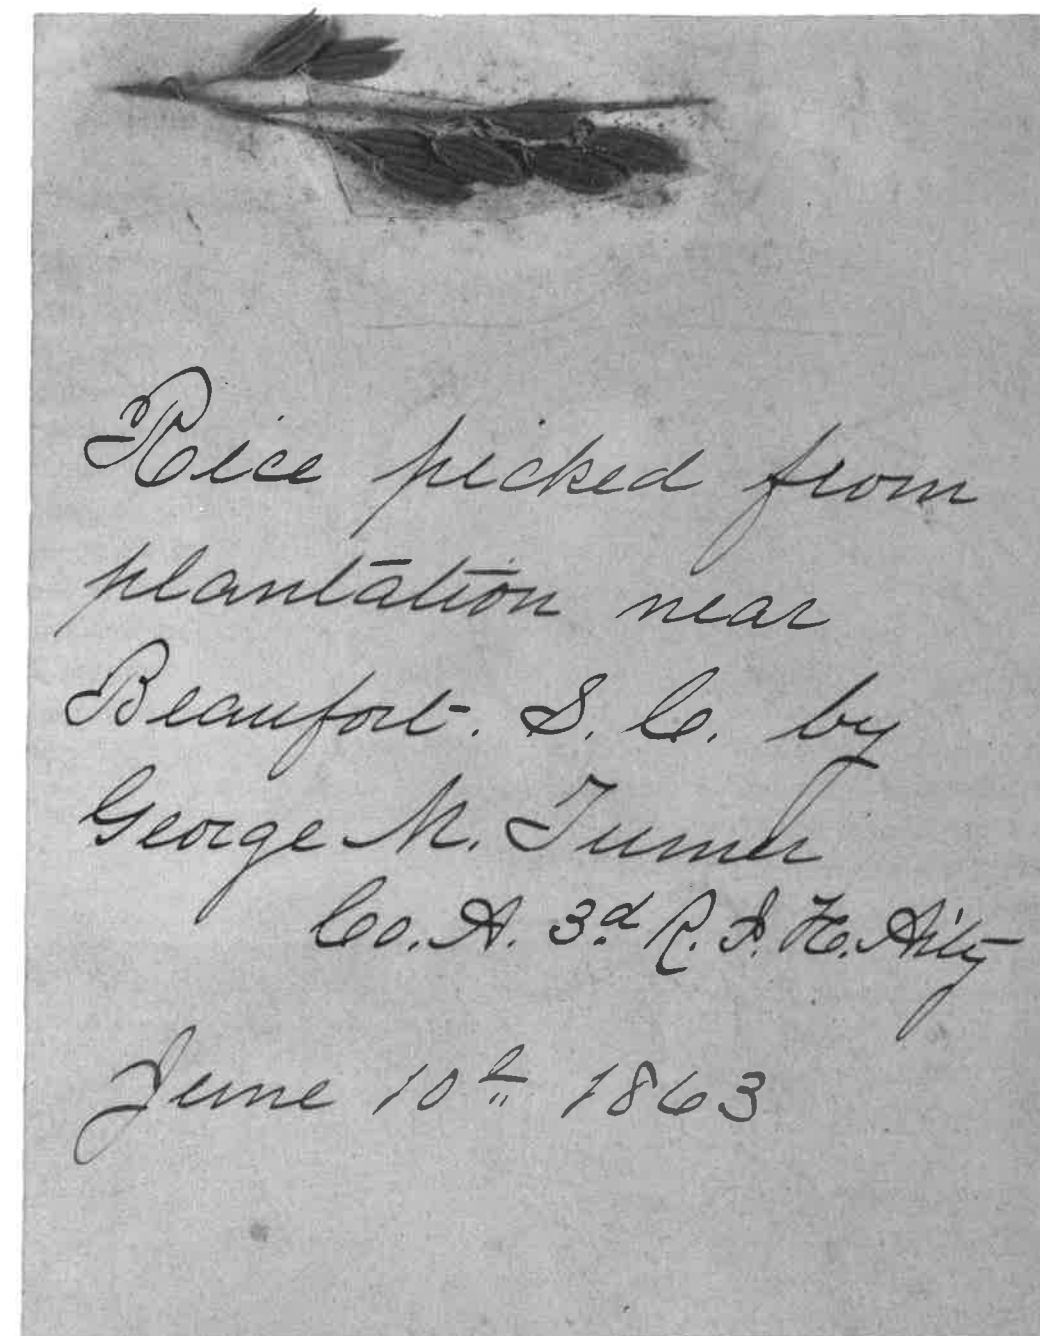 Rice picked from
plantation near
Beaufort. S. C. by
George M. Turner
Co. A. 3.d R. I. H. Art'y
June 10th 1863